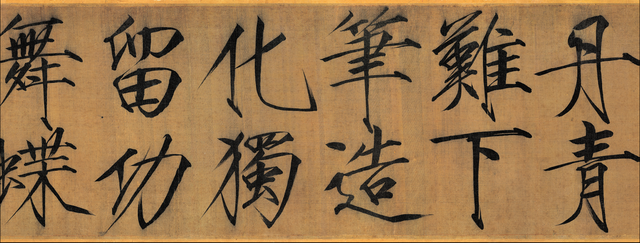 丹青
難下
筆造
化獨
留功
舞蝶